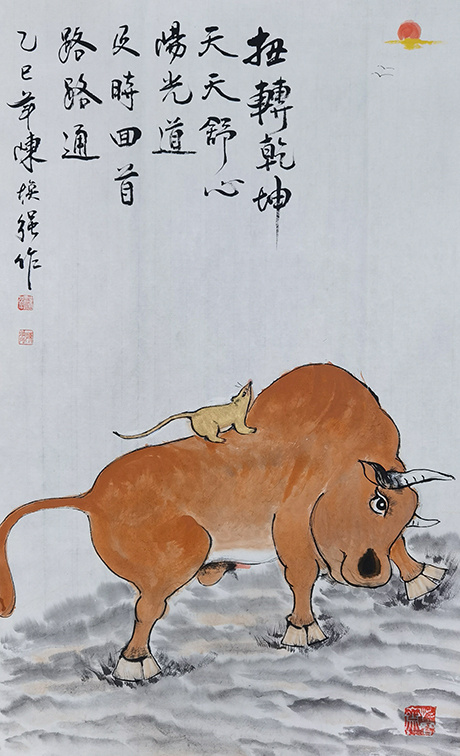 扭轉乾坤
天天舒心
陽光道
及時回首
路路通
乙巳年陳焕强作